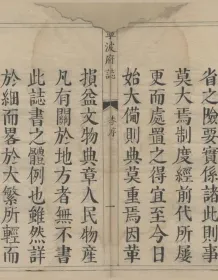 省之險要實係諸此則事
莫大焉制度經前代所屢
更而處置之得宜至今日
始大備則典莫重焉因革
寧波府誌
序
一
損益文物典章人民物產
凡有關於地方者無不書
此誌書之體例也雖然詳
於細而畧於大繁所輕而